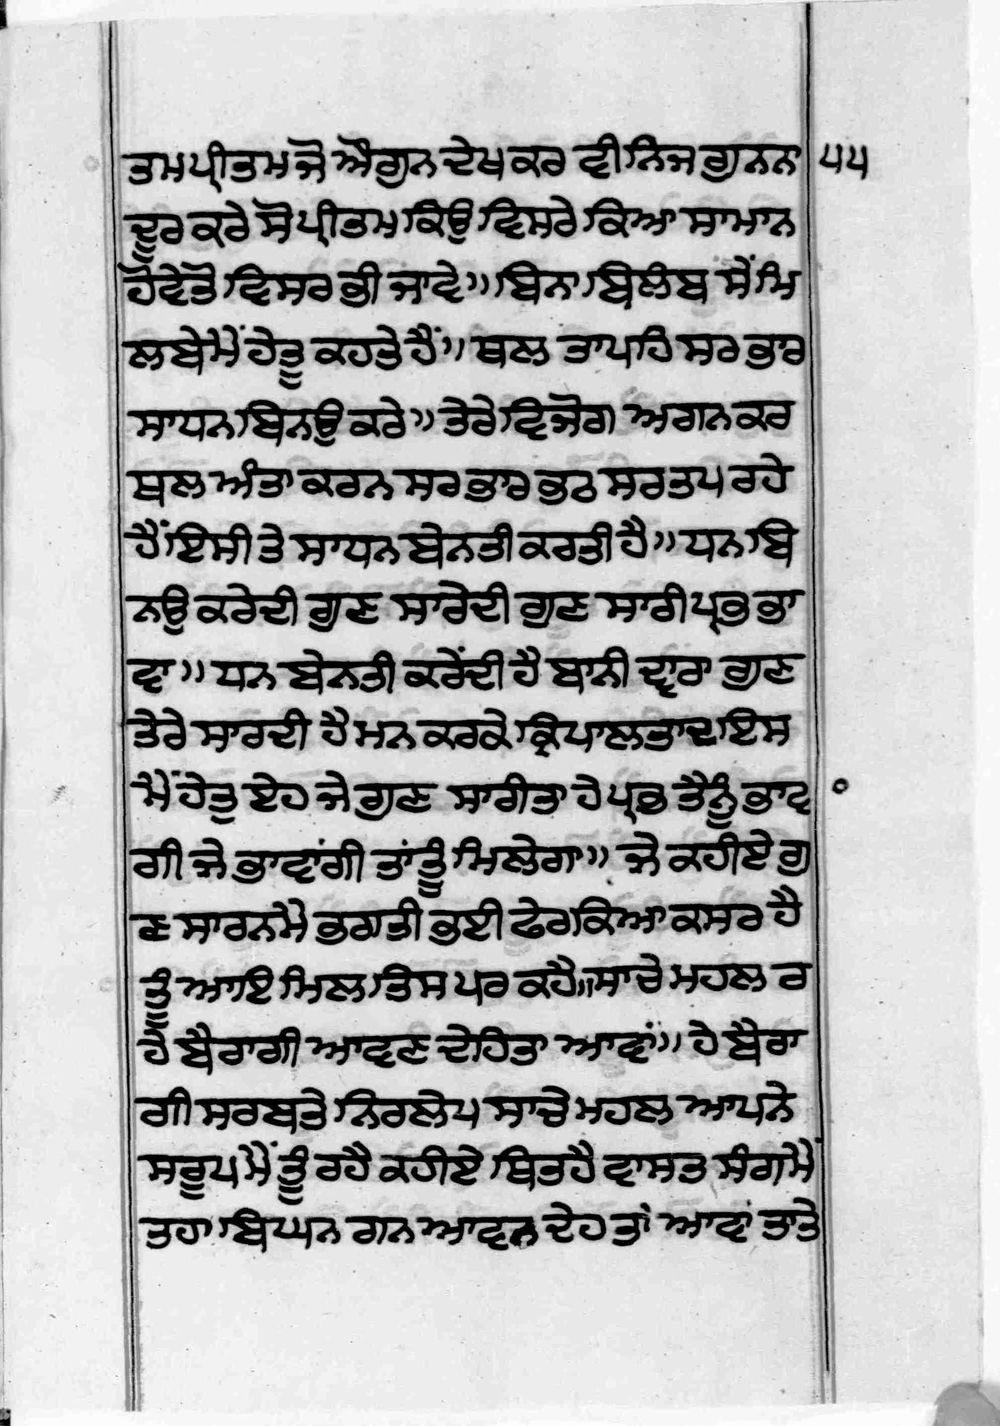 ਤਮਪ੍ਰੀਤਮ ਜੋ ਔਗੁਨ ਦੇਖ ਕਰ ਵੀ ਨਿਜ ਗੁਨਨ ੫੫
ਦੂਰ ਕਰੇ ਸੋ ਪ੍ਰੀਤਮ ਕਿਉ ਵਿਸਰੇ ਕਿਆ ਸਾਮਾਨ
ਹੋਵੇ ਤੋ ਵਿਸਰ ਭੀ ਜਾਵੇ॥ ਬਿਨਾ ਬਿਲੰਬ ਸੇਂ ਮਿ
ਲਬੇ ਮੇਂ ਹੇਤੂ ਕਹਤੇ ਹੈਂ॥ ਥਲ ਤਾਪਹਿ ਸਰ ਭਾਰ
ਸਾਧਨ ਬਿਨਉ ਕਰੇ॥ ਤੇਰੇ ਵਿਜੋਗ ਅਗਨ ਕਰ
ਥਲ ਅੰਤਾਕਰਨ ਸਰ ਭਾਰ ਭਠ ਸਰ ਤਪ ਰਹੇ
ਹੈਂ ਇਸੀ ਤੇ ਸਾਧਨ ਬੇਨਤੀ ਕਰਤੀ ਹੈ॥ ਧਨ ਬਿ
ਨਉ ਕਰੇਦੀ ਗੁਣ ਸਾਰੇਦੀ ਗੁਣ ਸਾਰੀ ਪ੍ਰਭ ਭਾ
ਵਾ॥ ਧਨ ਬੇਨਤੀ ਕਰੇਂਦੀ ਹੈ ਬਾਨੀ ਦ੍ਵਾਰਾ ਗੁਣ
ਤੇਰੇ ਸਾਰਦੀ ਹੈ ਮਨ ਕਰਕੇ ਕ੍ਰਿਪਾਲਤਾਦ ਇਸ
ਮੈਂ ਹੇਤੁ ਏਹ ਜੇ ਗੁਣ ਸਾਰੀਤਾ ਹੇ ਪ੍ਰਭ ਤੈਨੂੰ ਭਾਵ
ਗੀ ਜੇ ਭਾਵਾਂਗੀ ਤਾਂ ਤੂੰ ਮਿਲੇਗਾ॥ ਜੇ ਕਹੀਏ ਗੁ
ਣ ਸਾਰਨ ਮੇ ਭਗਤੀ ਭਈ ਫੇਰ ਕਿਆ ਕਸਰ ਹੈ
ਤੂੰ ਆਇ ਮਿਲ ਤਿਸ ਪਰ ਕਹੈ॥ ਸਾਚੇ ਮਹਲ ਰ
ਹੇ ਬੈਰਾਗੀ ਆਵਣ ਦੇਹਿ ਤਾ ਆਵਾਂ॥ ਹੇ ਬੈਰਾ
ਗੀ ਸਰਬ ਤੇ ਨਿਰਲੇਪ ਸਾਚੇ ਮਹਲ ਆਪਨੇ
ਸਰੂਪ ਮੈਂ ਤੂੰ ਰਹੈ ਕਹੀਏ ਥਿਤ ਹੈ ਵਾਸਤ ਸੰਗ ਮੈਂ
ਤਹਾ ਬਿਘਨ ਗਨ ਆਵਨ ਦੇਹ ਤਾਂ ਆਵਾਂ ਤਾਤੇ